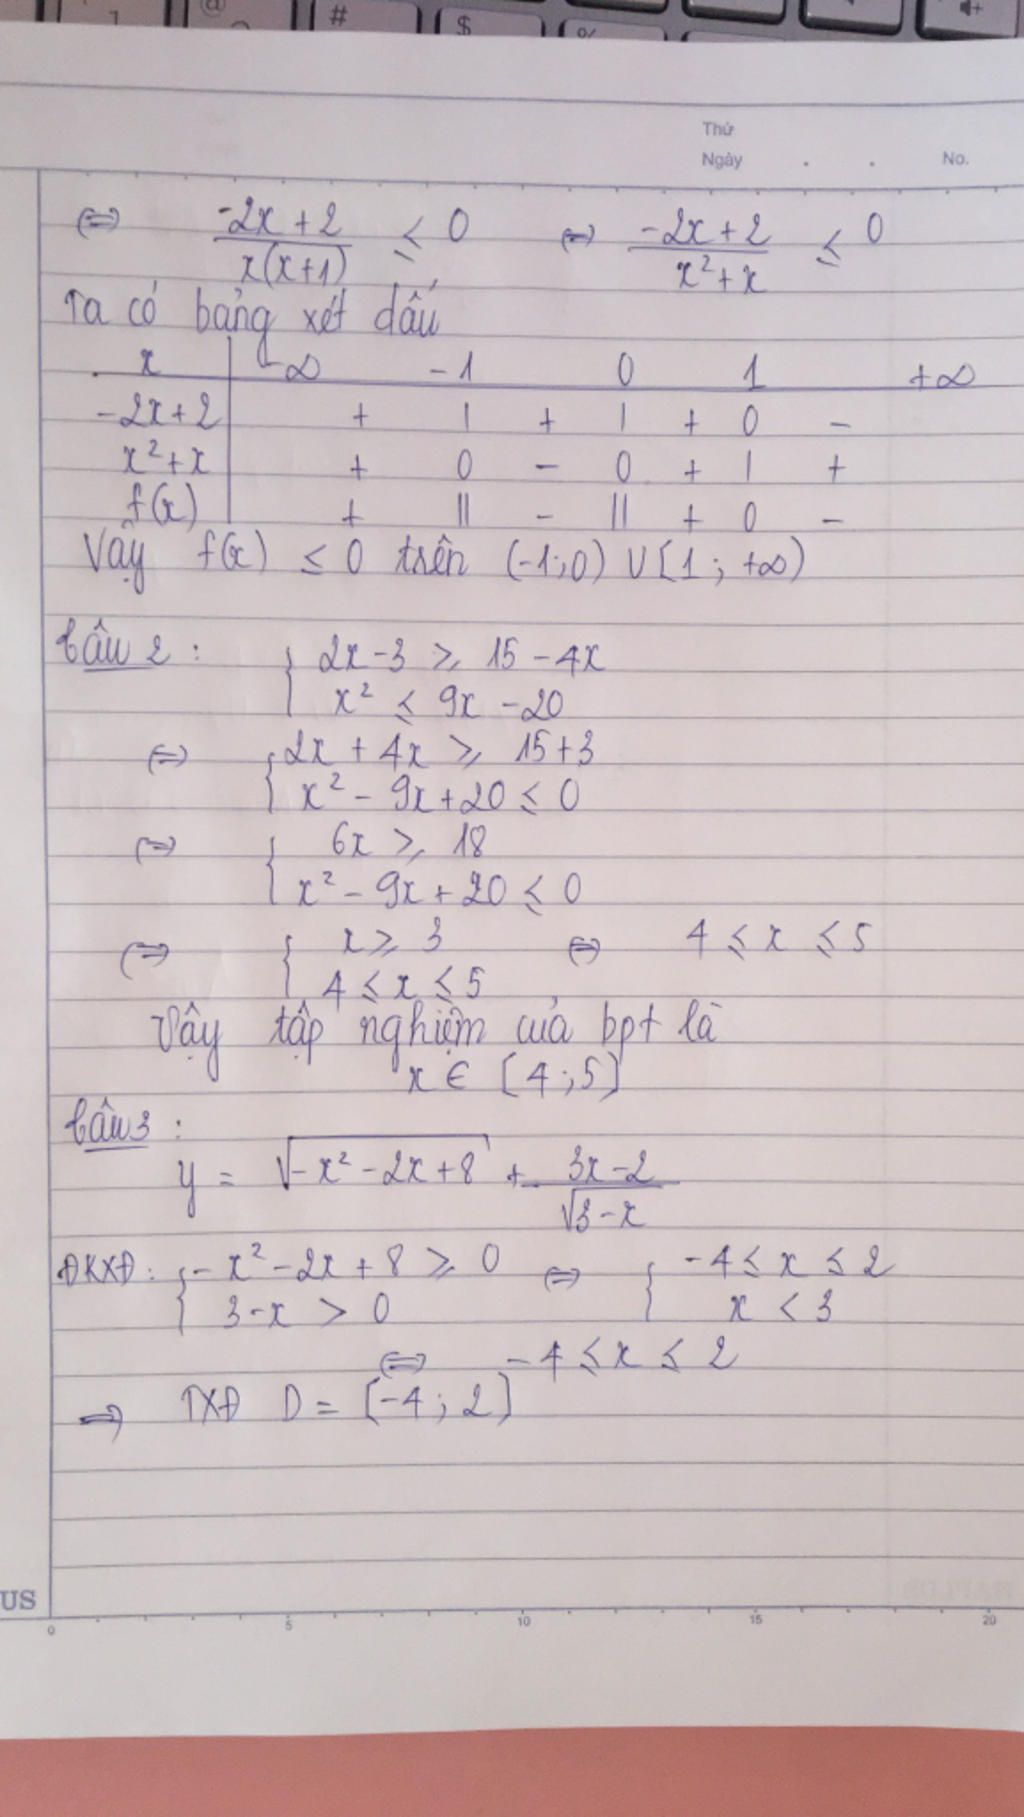 @ # $ %
Thứ
Ngày . . No.
⇔ -2x+2 / x(x+1) ≤ 0 ⇔ -2x+2 / x²+x ≤ 0
Ta có bảng xét dấu
x -∞ -1 0 1 +∞
-2x+2 + | + | + 0 -
x²+x + 0 - 0 + | +
f(x) + || - || + 0 -
Vậy f(x) ≤ 0 trên (-1;0) ∪ [1; +∞)
Câu 2 : { 2x-3 ≥ 15-4x
x² ≤ 9x-20
⇔ { 2x+4x ≥ 15+3
x²-9x+20 ≤ 0
⇔ { 6x ≥ 18
x²-9x+20 ≤ 0
⇔ { x ≥ 3 ⇔ 4 ≤ x ≤ 5
4 ≤ x ≤ 5
Vậy tập nghiệm của bpt là
x ∈ [4;5]
Câu 3 :
y = √(-x²-2x+8) + 3x-2 / √(3-x)
ĐKXĐ: { -x²-2x+8 ≥ 0 ⇔ { -4 ≤ x ≤ 2
3-x > 0 x < 3
⇔ -4 ≤ x ≤ 2
⇒ TXĐ D = [-4; 2]
US
0 5 10 15 20